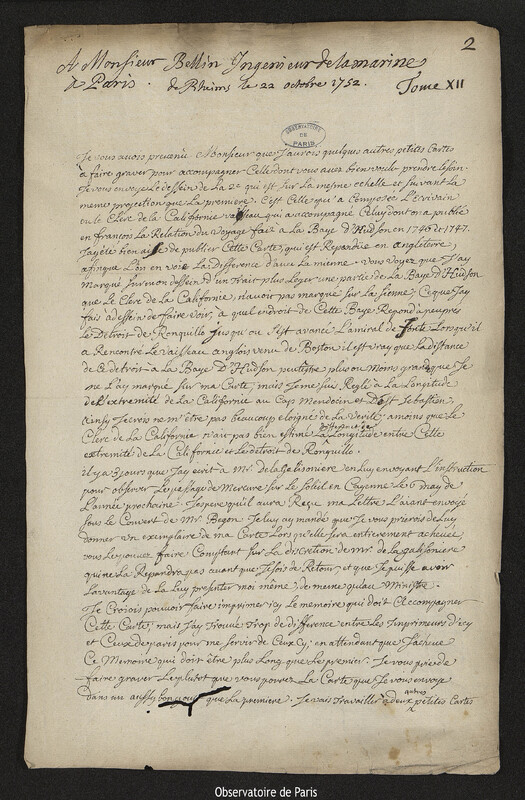 2
A Monsieur Bellin Ingenieur de la marine
à Paris . de Rheims le 22 octobre 1752.
Tome XII
OBSERVATOIRE DE PARIS
Je vous avois prevenu Monsieur que J'aurois quelques autres petites Cartes
a faire graver pour accompagner Celle dont vous aves bien voulu prendre le soin.
Je vous envoye Le dessein de La 2e qui est sur La mesme echelle et suivant La
meme projection que La premiere. C'est Celle qu'a Composée L'Ecrivain
ou le Clerc de la Californie vaisseau qui a accompagné Celuy dont on a publié
en francois La Relation du Voyage fait a La Baye D'Hudson en 1746 et 1747.
J'ay eté bien aise de publier Cette Carte, qui est Repandue en angleterre,
afin que L'on en voie La Difference d'avec La mienne. vous voyez que J'ay
Marqué sur mon dessein d'un trait plus Leger une partie de La Baye D'Hudson
que Le Clerc de La Californie, n'avoit pas marqué sur La sienne; Ce que J'ay
fait a dessein de faire voir, a quel endroit de Cette Baye Repond a peu pres
Le Detroit de Ronquillo jusqu'ou s'est avancé L'amiral de fonte Lorsqu'il
a Rencontré Le vaisseau anglois venu de Boston il est vray que La distance
de Ce detroit a La Baye D'Hudson peut etre plus ou moins grande que Je
ne L'ay marqué sur ma Carte, mais Je me suis Reglé a La Longitude
de L'extremité de La Californie au Cap Mendocin et De St Sebastien,
Ainsy Je crois ne m'être pas beaucoup eloigné de La verité; a moins que Le
Clerc de La Californie n'ait pas bien estimé La difference de Longitude entre Cette
extremité de La Californie et Le detroit de Ronquillo.
il y a 3 jours que J'ay ecrit a Mr. de la Galisoniere en Luy envoyant L'instruction
pour observer Le passage de Mercure sur Le soleil en Cayenne Le 6 may de
L'année prochaine. J'espere qu'il aura Reçu ma Lettre L'aiant envoyé
sous Le Couvert de Mr. Begon. Je luy ay mandé que Je vous prierois de Luy
donner un exemplaire de ma Carte Lorsqu'elle sera entierement achevée
vous Le pouvez faire Comptant sur La discretion de Mr. de la galisoniere
qui ne La Repandra pas avant que Je sois de Retour, et que Je puisse avoir
L'avantage de La Luy presenter moi même, de meme qu'au Ministre.
Je Croiois pouvoir faire imprimer icy Le memoire qui doit accompagner
Cette Carte, mais J'ay trouvé trop de difference entre Les Imprimeurs d'icy
et Ceux de paris pour me servir de Ceux Cy; en attendant que J'acheve
Ce Memoire qui doit être plus Long que Le premier: Je vous prie de
faire graver Le plutot que vous pourrez La Carte que Je vous envoye
dans un aussy bon gout que La premiere. Je vais travailler a deux autres petites Cartes
Observatoire de Paris